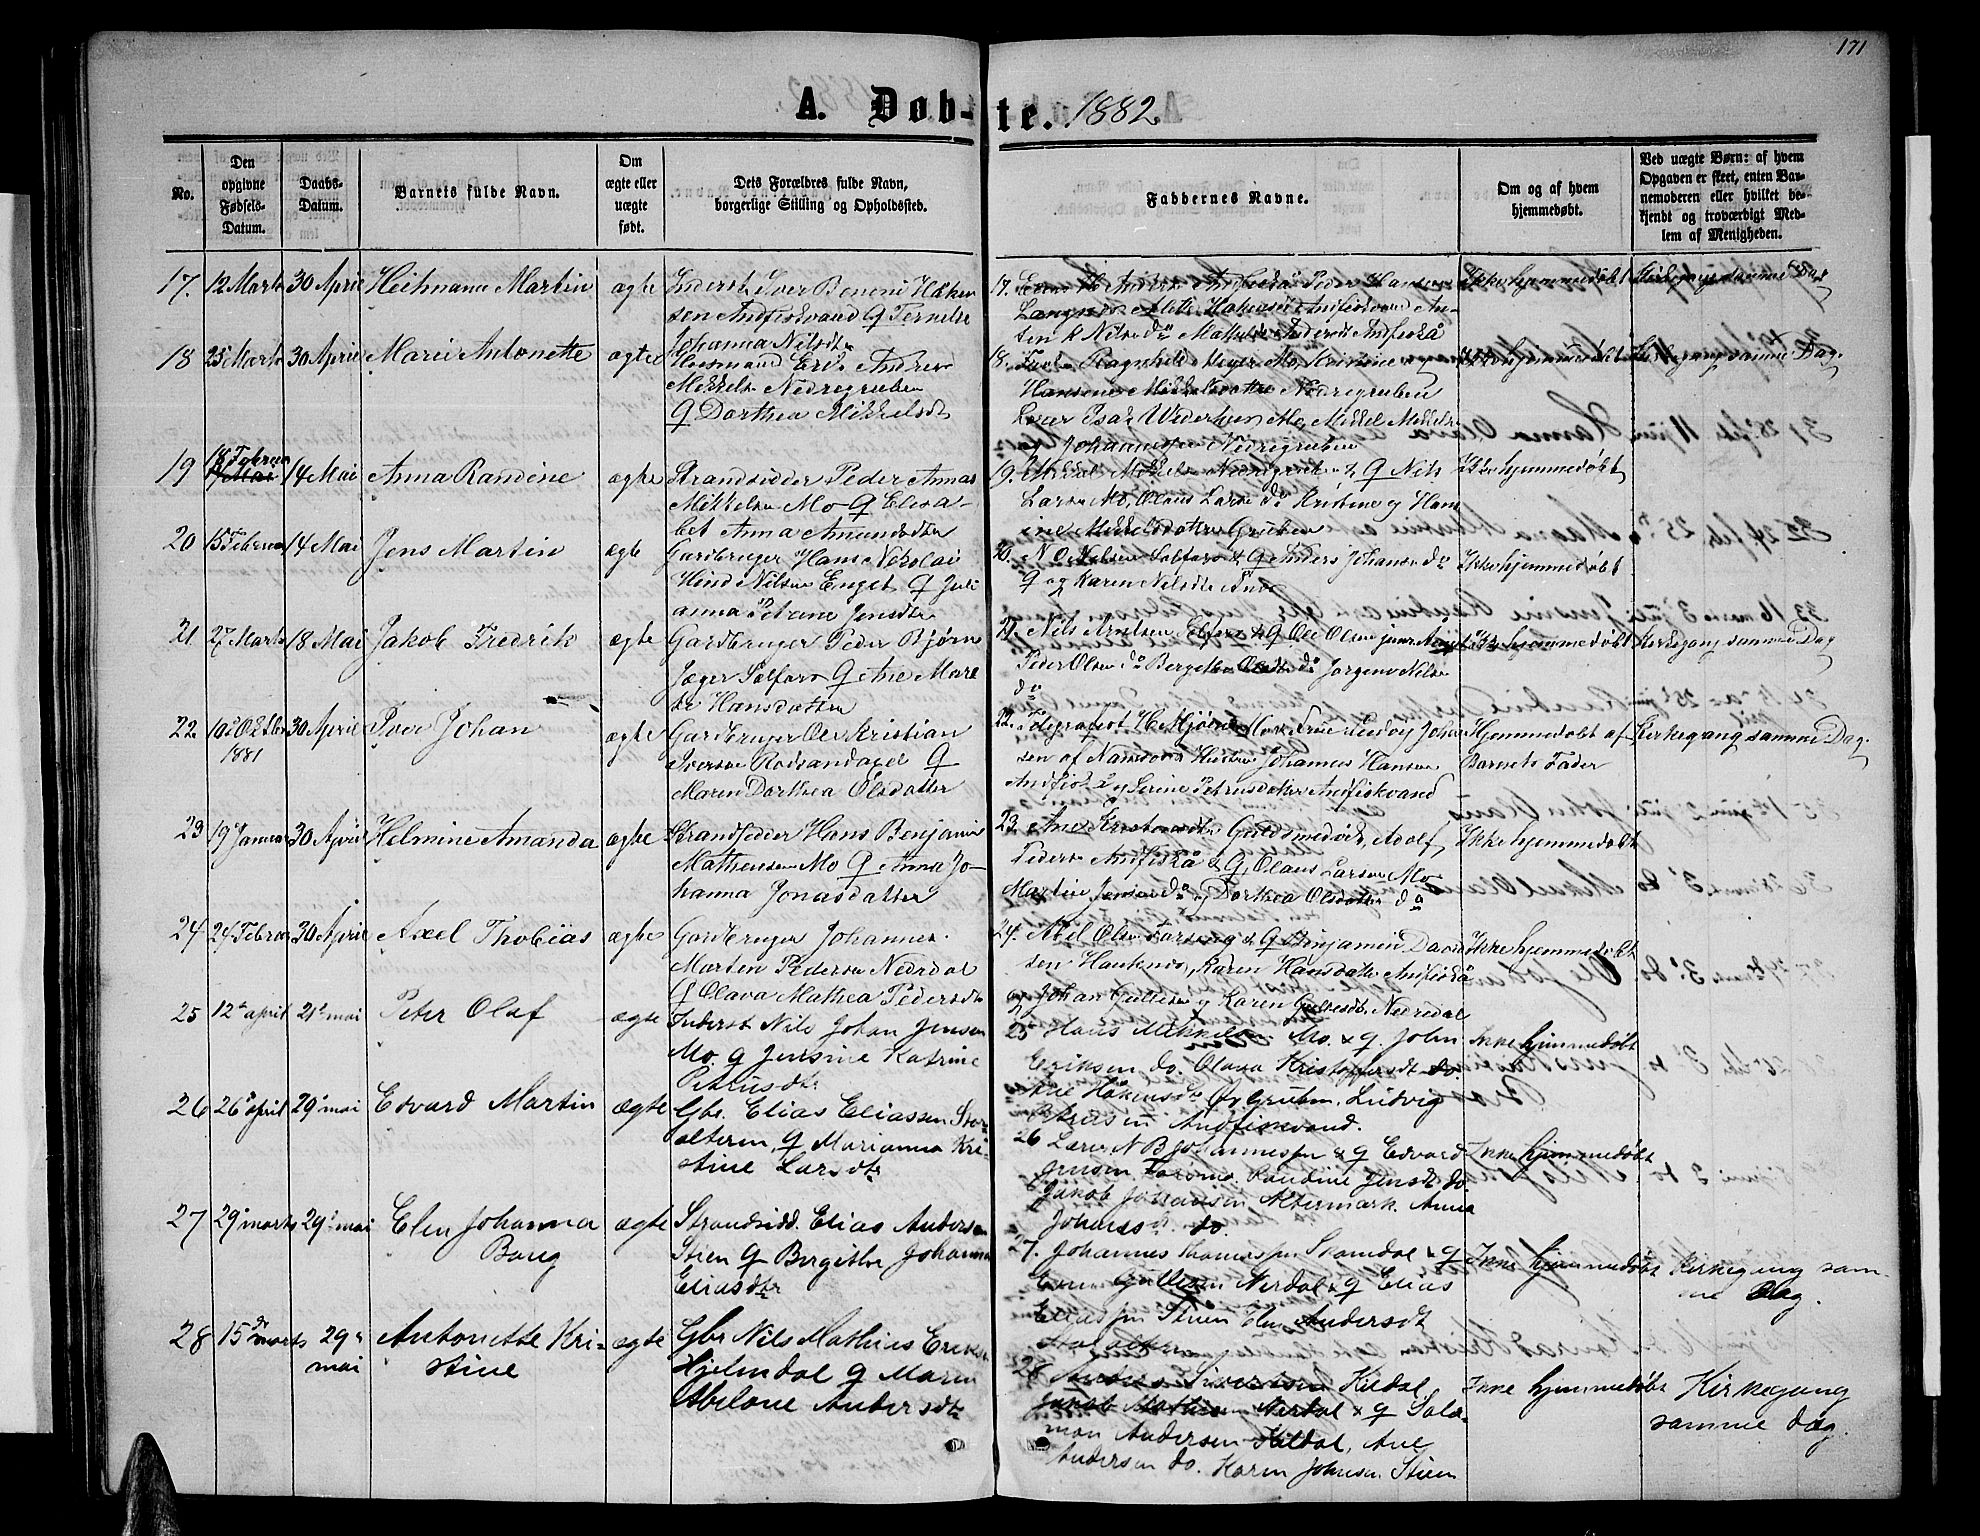 171
A. Døb-te. 1882.
No.
Den opgivne Fødsels-Datum.
Daabs-Datum.
Barnets fulde Navn.
Om ægte eller uægte født.
Dets Forældres fulde Navn, borgerlige Stilling og Opholdssted.
Faddernes Navne.
Om og af hvem hjemmedøbt.
Ved uægte Børn: af hvem Opgaven er skeet, enten Barnemoderen eller hvilket bekjendt og troværdigt Medlem af Menigheden.
17. 12 Marts 30 April Heitmann Martin ægte
Inderst Iver Benoni Håken
sen Andfiskvand & Pernelle
Johanna Nilsdtr
Ikke hjemmedøbt Kirkegang samme Dag
18 25 Marts 30 April Marie Antonette ægte
Husmand Erik Andreas
Mikkelsen Nedregruben
& Dorthea Mikkelsdt
Hansine Mikkelsdatter Nedregruben
Ikke hjemmedøbt Kirkegang samme Dag.
19 18 Februar 14 Mai Anna Randine ægte
Strandsidder Peder Annas
Mikkelsen Mo & Elisa-
bet Anna Amundsdatter
Larsen Mo, Olaus Larsen do Kristine og Han
sine Mikkelsdatter Gruben
Ikke hjemmedøbt
20 15 Februar 14 Mai Jens Martin ægte
Gardbruger Hans Nikolai
Hind Nilsen Enget & Juli
anna Petrine Jensdtr
& og Karen Nilsdtr
Ikke hjemmedøbt
21 27 Marts 18 Mai Jakob Fredrik ægte
Gardbruger Peder Bjørn
Jæger Selfors & Ane Mare
te Hansdatter
21. Nils Nilsen Selfors & & Ole Olsen
Peder Olsen do Bergette Olsdtr do Jørgen Nilsen
do
Ikke hjemmedøbt Kirkegang samme Dag
22 10de Oktbr 1881 30 April Iver Johan ægte
Gardbruger Ole Kristian
Iversen Rødsandaxel &
Maren Dorthea Olsdatter
sen af Namsos Hustru Johannes Hansen
Andfisk og Serine Petrusdatter Andfiskvand
Hjemmedøbt af Barnets Fader Kirkegang samme Dag.
23 19 Januar 30 April Helmine Amanda ægte
Strandsidder Hans Benjamin
Mathensen Mo & Anna Jo-
hanna Jonasdatter
Pedersen Andfiskå & & Olaus Larsen Mo
Martin Jensen do og Dorthea Olsdatter do
Ikke hjemmedøbt
24 24 Februar 30 April Axel Thobias ægte
Gardbruger Johannes
Marten Pedersen Nedrdal
& Olava Mathea Pedersdt
24. Abil Olsen & & Benjamin David
sen Hauknes, Karen Hansdatter Andfiskå
og Johan Gullesen og Karen Gullesdt Nedredal
Ikke hjemmedøbt
25 12te april 21de mai Peter Olaf ægte
Inderst Nils Johan Jensen
Mo & Jensine Katrine
Petrusdtr
25 Hans Mikkelsen Mo & & John
Eriksen do. Olava Kristoffersdt do.
Ane Håkensdtr Gruben, Ludvig
Petersen Andfiskvand.
Ikke hjemmedøbt
26 26de april 29de mai Edvard Martin ægte
Gbr. Elias Eliassen Stor
alteren & Marianna Kri
stine Larsdtr
26 Lars N B Johannessen & & Edvard
Jensen Forsmo. Randine Jensdt do.
Jakob Johansen Altermark. Anna
Johnsdt. do.
Ikke hjemmedøbt
27 29de marts 29de mai Elen Johanna Bong ægte
Strandsidd. Elias Andersen
Stien & Bergette Johanna
Eliasdtr
27. Johannes Thomassen Skamdal & &
Gullesen Nerdal & & Elias
Eliassen Stien Elen Andersdt
Storalteren
Ikke hjemmedøbt Kirkegang sam-
me Dag.
28 15de marts 29de mai Antonette Kri-
stine ægte
Gbr Nils Mathias Eriks
Hjelmdal & Maren
Abelone Andersdtr
28 Anders Sivertsen Kildal
Jakob Mathisen Nerdal & & Salo
mon Andersen Kildal, Ane
Andersen do. Karen Johnsen Stien
Ikke hjemmedøbt Kirkegang
samme dag.